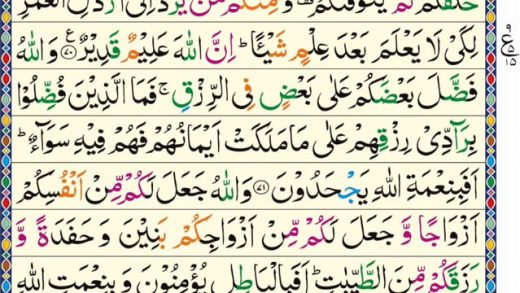 خَلَقَكُمْ ثُمَّ يَتَوَفّٰىكُمْ ۙ وَ مِنْكُمْ مَّنْ يُّرَدُّ اِلٰۤى اَرْذَلِ الْعُمُرِ
لِكَیْ لَا يَعْلَمَ بَعْدَ عِلْمٍ شَيْـًٔا ؕ اِنَّ اللّٰهَ عَلِيْمٌ قَدِيْرٌ ﴿۷۰﴾ ع وَاللّٰهُ
فَضَّلَ بَعْضَكُمْ عَلٰى بَعْضٍ فِى الرِّزْقِ ۚ فَمَا الَّذِيْنَ فُضِّلُوْا
بِرَآدِّىْ رِزْقِهِمْ عَلٰى مَا مَلَكَتْ اَيْمَانُهُمْ فَهُمْ فِيْهِ سَوَآءٌ ؕ
اَفَبِنِعْمَةِ اللّٰهِ يَجْحَدُوْنَ ﴿۷۱﴾ وَاللّٰهُ جَعَلَ لَكُمْ مِّنْ اَنْفُسِكُمْ
اَزْوَاجًا وَّ جَعَلَ لَكُمْ مِّنْ اَزْوَاجِكُمْ بَنِيْنَ وَ حَفَدَةً وَّ
رَزَقَكُمْ مِّنَ الطَّيِّبٰتِ ؕ اَفَبِالْبَاطِلِ يُؤْمِنُوْنَ وَ بِنِعْمَتِ اللّٰهِ